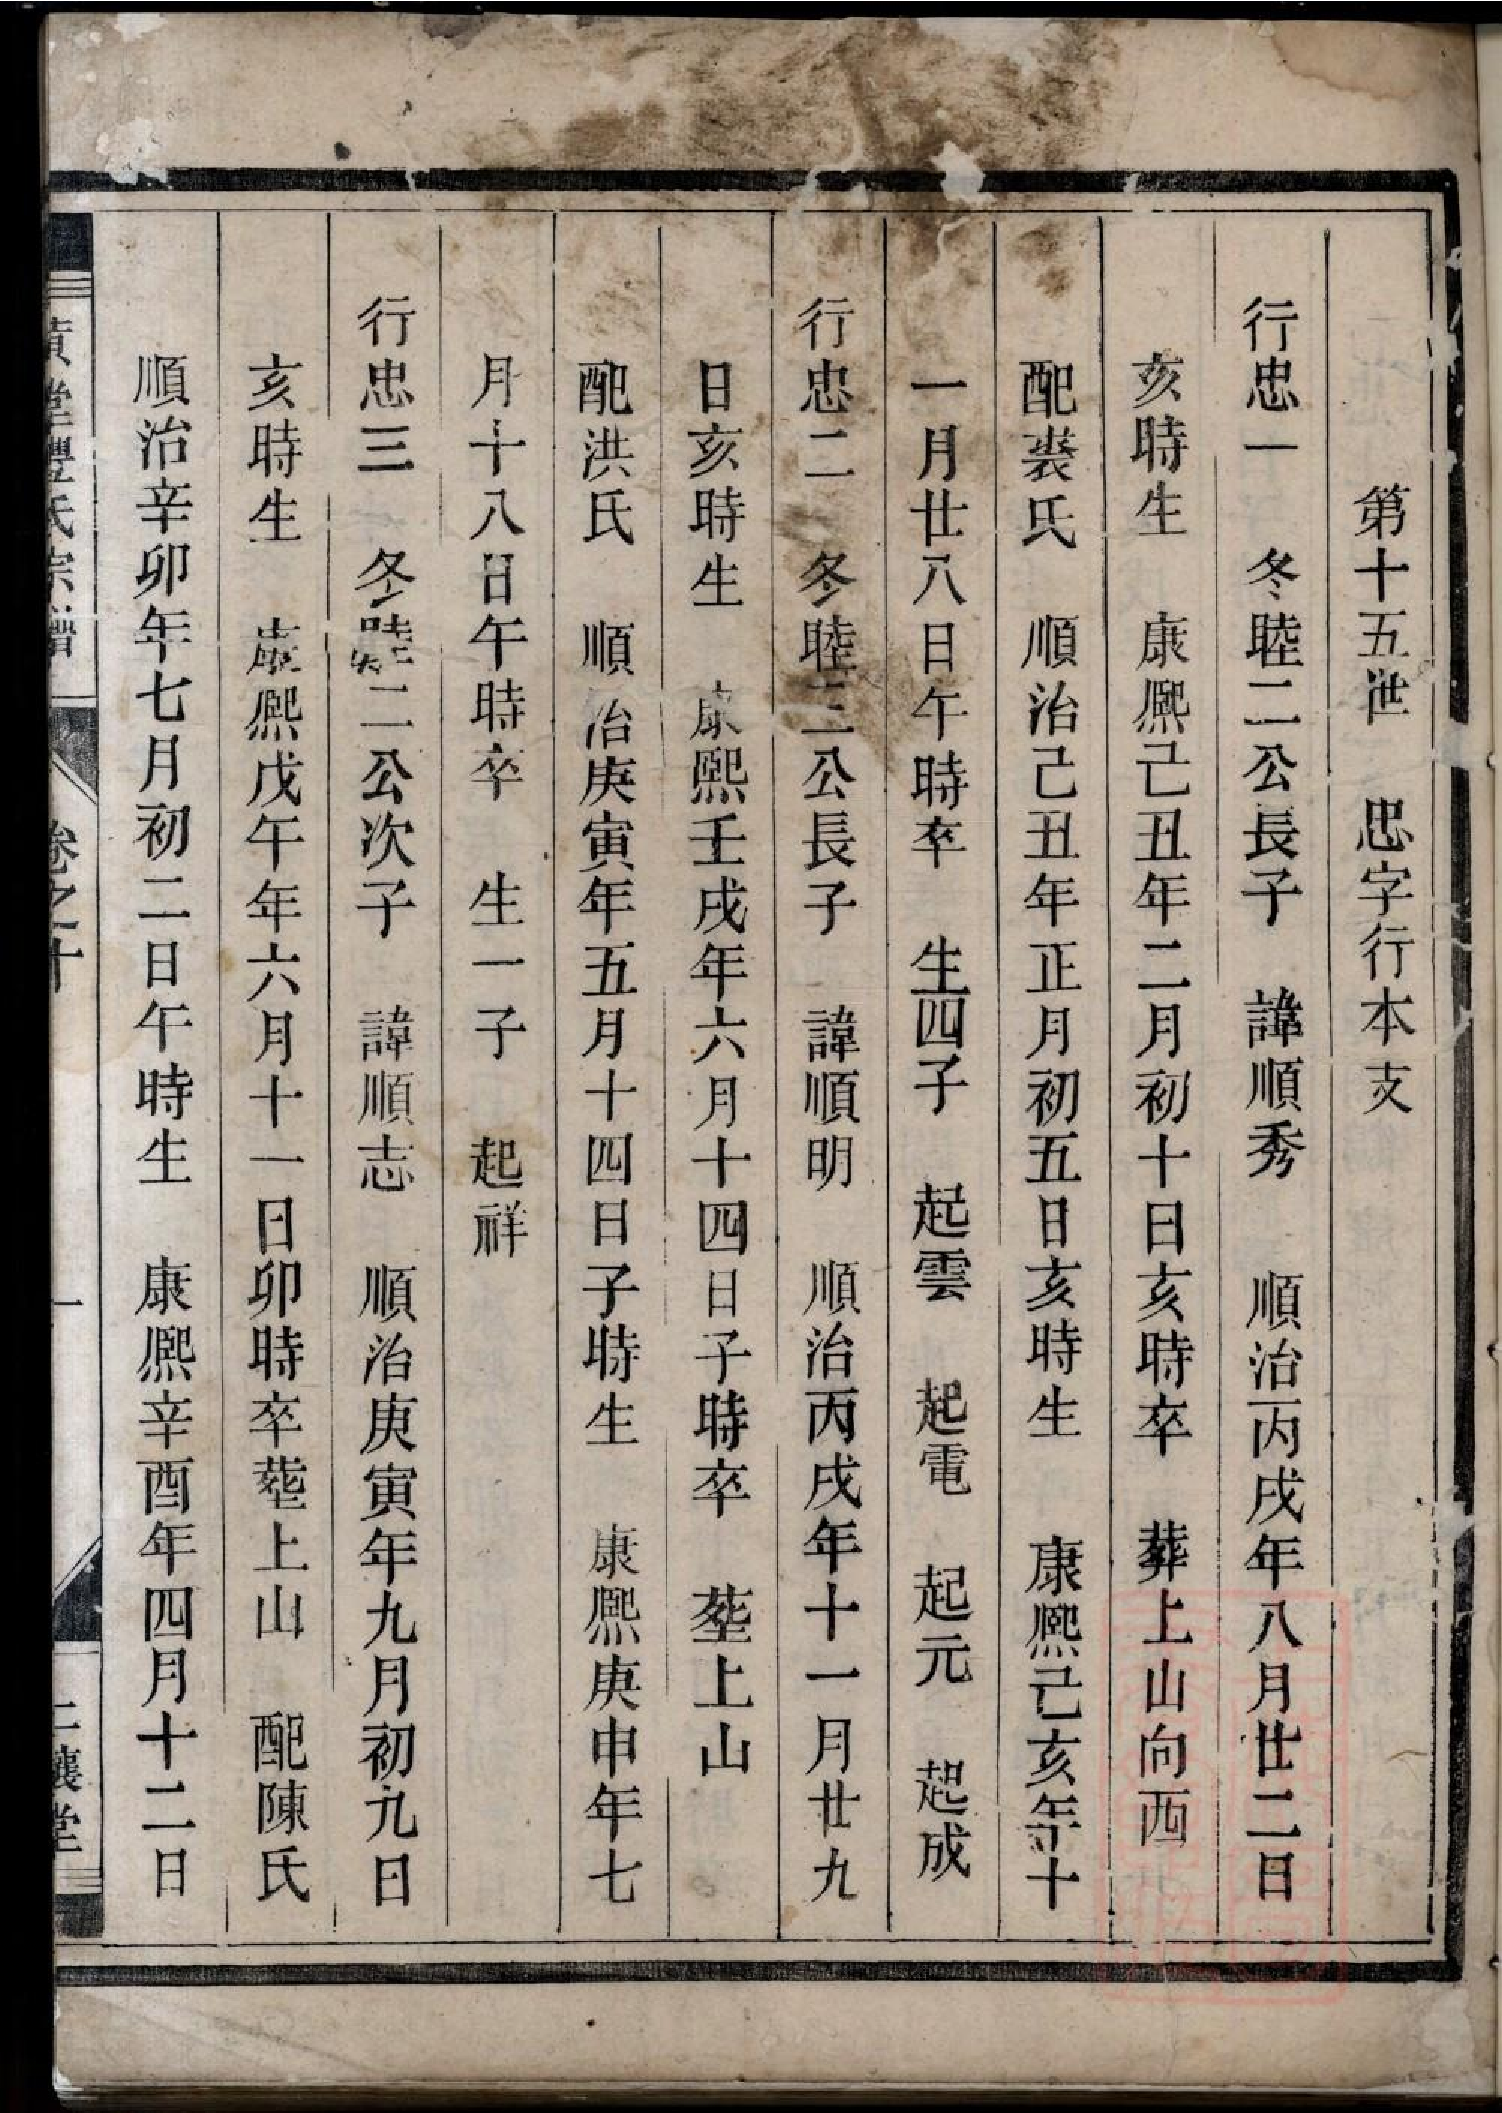 第十五世 忠字行本支
行忠一 冬睦二公長子 諱順秀 順治丙戌年八月廿二日
亥時生 康熙己丑年二月初十日亥時卒 葬上山向西
配裴氏 順治己丑年正月初五日亥時生 康熙己亥年十
一月廿八日午時卒 生四子 起雲 起電 起元 起成
行忠二 冬睦三公長子 諱順明 順治丙戌年十一月廿九
日亥時生 康熙壬戌年六月十四日子時卒 塟上山
配洪氏 順治庚寅年五月十四日子時生 康熙庚申年七
月十八日午時卒 生一子 起祥
行忠三 冬睦二公次子 諱順志 順治庚寅年九月初九日
亥時生 康熙戊午年六月十一日卯時卒塟上山 配陳氏
順治辛卯年七月初二日午時生 康熙辛酉年四月十二日
黃堂豐氏宗譜 卷之十 一 堂